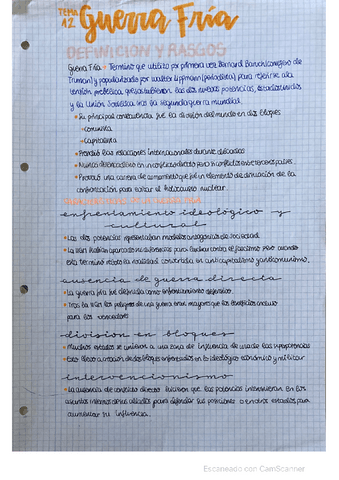 TEMA 12 Guerra Fría
DEFINICION Y RASGOS
Guerra Fría → Termino que utilizo por primera vez Bernard Baruch (consejero de
Truman) y popularizado por Walter Lippmann (periodista) para referirse a la
tensión prebélica que sostuvieron las dos nuevas potencias, estados unidos
y la Unión Soviética tras la segunda guerra mundial.
• Su principal consecuencia fue la división del mundo en dos bloques
→ Comunista
→ Capitalista
• Presidió las relaciones internacionales durante décadas
• Nunca desencadeno en un conflicto directo pero si conflictos en terceros países.
• Provocó una carrera de armamento que fue un elemento de disuasión de la
confrontación para evitar el holocausto nuclear.
enfrentamiento ideológico y
cultural
• Las dos potencias representaban modelos antagónicos de sociedad.
• La IIGM habían aparcado sus diferencias para luchar contra el fascismo pero cuando
esta terminó volvió la rivalidad centrada en anticapitalismo y anticomunismo.
ausencia de guerra directa
• La guerra fría fue definida como enfrentamiento
• Tras la IIGM los peligros de una guerra eran mayores que los beneficios incluso
para los vencedores
división en bloques
• Muchos estados se unieron a una zona de influencia de una de las superpotencias
• Esto llevo a creación de dos bloques enfrentados en lo ideológico económico y militar
intervencionismo
• La ausencia de conflicto directo hicieron que las potencias intervinieran en los
asuntos internos de sus aliados para defender sus posiciones o en otros estados para
aumentar su influencia.
Escaneado con CamScanner